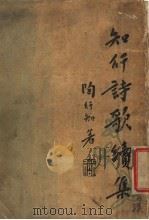 知行詩歌續集
陶行知著